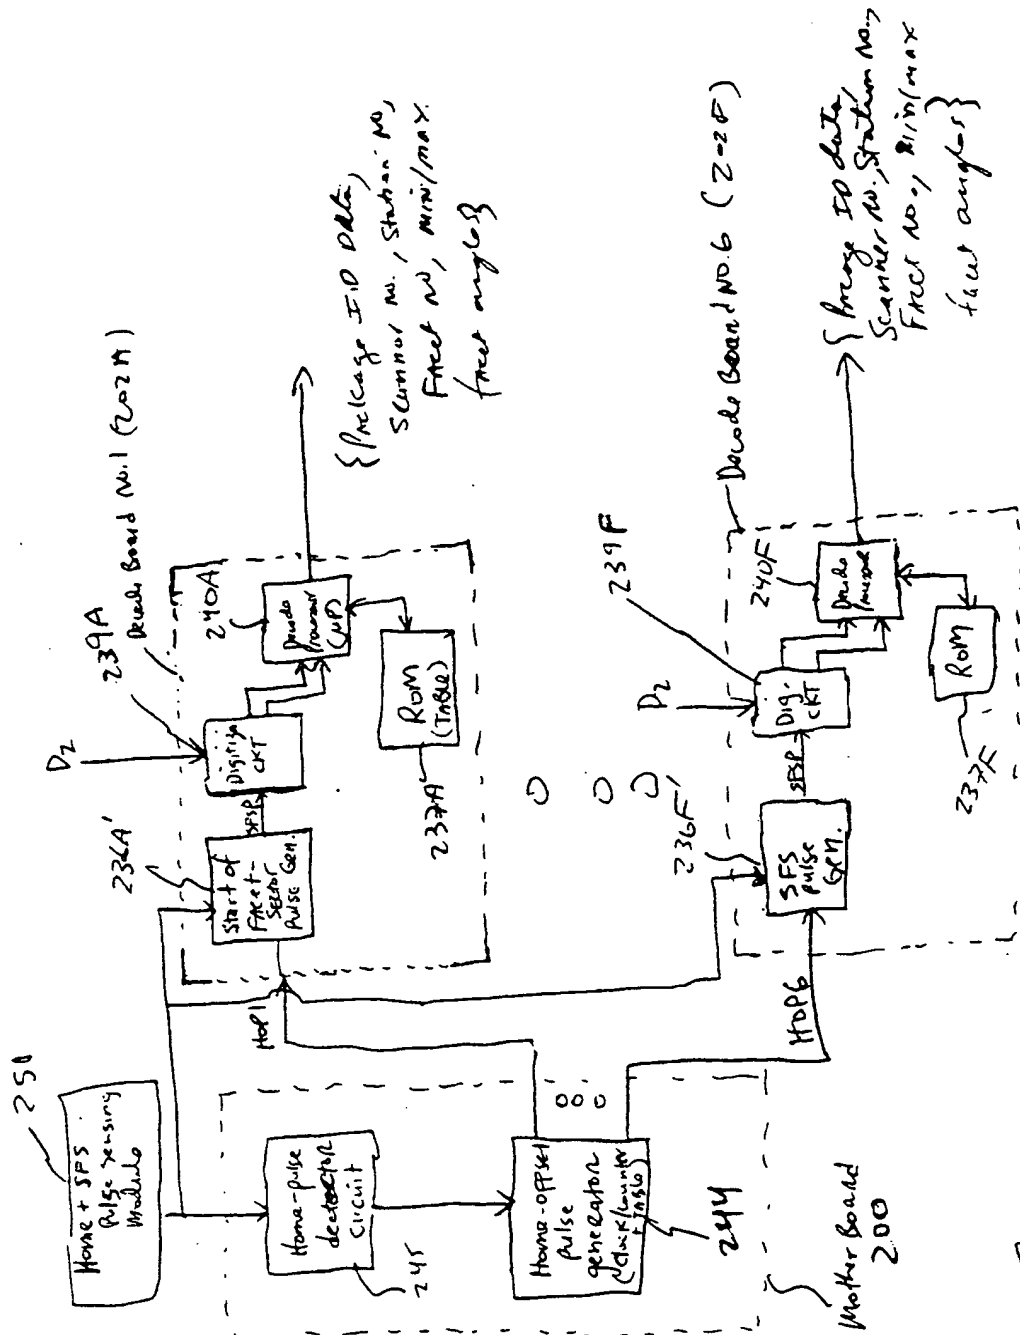 250
Home + SFS
Pulse sensing
Module
Home-pulse
detector
Circuit
245
Home-offset
pulse
generator
(clock/counter
+ Table)
244
Mother Board
200
HOP1
HOP6
236A'
Start of
Facet-
Sector
Pulse Gen.
SFSP
D2
239A
Digitizing
CKT
Decode Board No.1 (202A)
240A
Decode
Processor
(MP)
ROM
(TABLE)
237A
{Package I.D Data,
Scanner no., Station no,
Facet no, min/max.
facet angles}
236F'
SFS
pulse
Gen.
SFSP
D2
239F
Dig.
CKT
Decode Board No.6 (202F)
240F
Decode
ROM
237F
{Package ID data,
Scanner no., Station no.,
Facet no., min/max
facet angles}